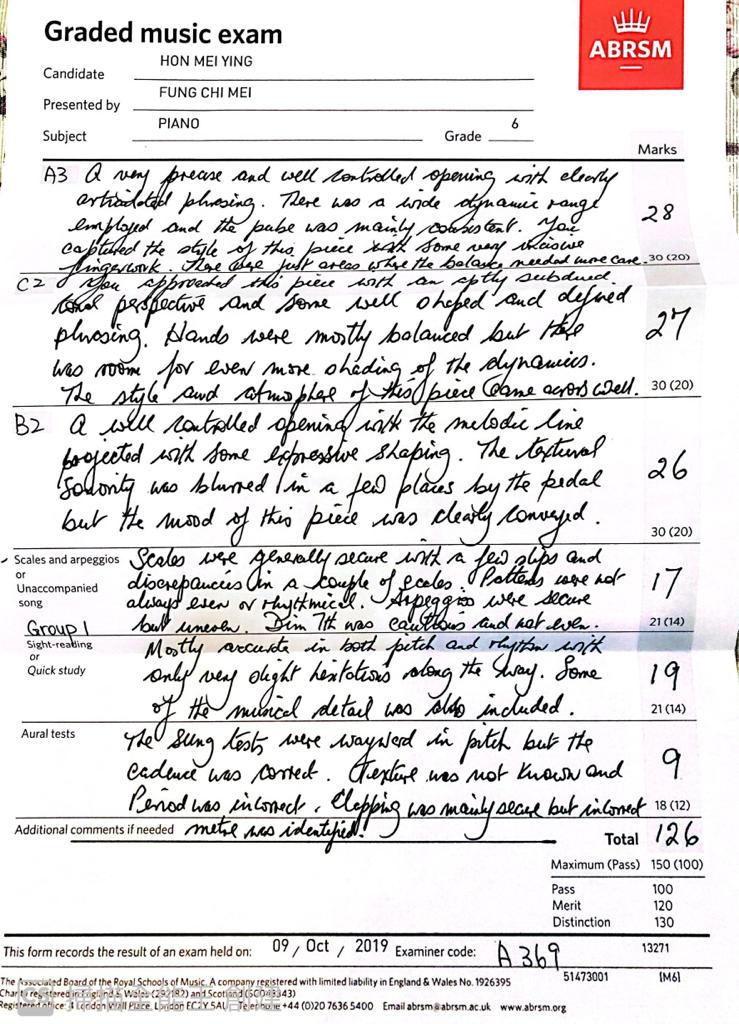 Graded music exam
ABRSM
Candidate HON MEI YING
Presented by FUNG CHI MEI
Subject PIANO Grade 6
Marks
A3 A very precise and well controlled opening with clearly
articulated phrasing. There was a wide dynamic range
employed and the pulse was mainly consistent. You
captured the style of this piece with some very incisive
fingerwork. There were just areas where the balance needed more care.
28
30 (20)
C2 You approached this piece with an aptly subdued
tonal perspective and some well shaped and defined
phrasing. Hands were mostly balanced but there
was room for even more shading of the dynamics.
The style and atmosphere of this piece came across well.
27
30 (20)
B2 A well controlled opening with the melodic line
projected with some expressive shaping. The textural
sonority was blurred in a few places by the pedal
but the mood of this piece was clearly conveyed.
26
30 (20)
Scales and arpeggios
or
Unaccompanied
song
Group 1
Scales were generally secure with a few slips and
discrepancies in a couple of scales. Patterns were not
always even or rhythmical. Arpeggios were secure
but uneven. Dim 7th was cautious and not even.
17
21 (14)
Sight-reading
or
Quick study
Mostly accurate in both pitch and rhythm with
only very slight hesitations along the way. Some
of the musical detail was also included.
19
21 (14)
Aural tests
The sung tests were wayward in pitch but the
cadence was correct. Texture was not known and
Period was incorrect. Clapping was mainly secure but incorrect
metre was identified!
9
18 (12)
Additional comments if needed
Total 126
Maximum (Pass) 150 (100)
Pass 100
Merit 120
Distinction 130
This form records the result of an exam held on: 09 / Oct / 2019 Examiner code: A369 13271
51473001 [M6]
The Associated Board of the Royal Schools of Music. A company registered with limited liability in England & Wales No. 1926395
Charity registered in England & Wales (292182) and Scotland (SC043343)
Registered office: 4 London Wall Place, London EC2Y 5AU Telephone +44 (0)20 7636 5400 Email abrsm@abrsm.ac.uk www.abrsm.org
CS 掃描全能王 創建